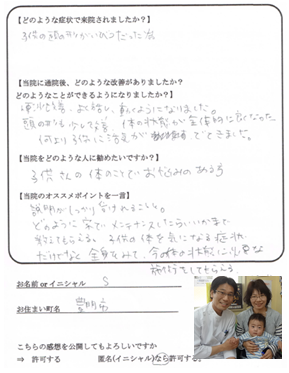 【どのような症状で来院されましたか？】
子供の頭の形がいびつだった為
【当院に通院後、どのような改善がありましたか？
どのようなことができるようになりましたか？】
よく動くようになりました。
頭の形も少し改善 体の状態が全体的に良くなった
何より子供に活気がでてきました。
【当院をどのような人に勧めたいですか？】
子供さんの体のことでお悩みのある方
【当院のオススメポイントを一言】
説明がしっかり受けれること。
どのように家でメンテナンスしたらいいかまで
教えてもらえる。子供の体を気になる症状
だけでなく全身をみて、今の体の状態に必要な
施術をしてもらえる
お名前 or イニシャル S
お住まい町名 豊明市
こちらの感想を公開してもよろしいですか
⇒ 許可する 匿名(イニシャル)なら許可する。